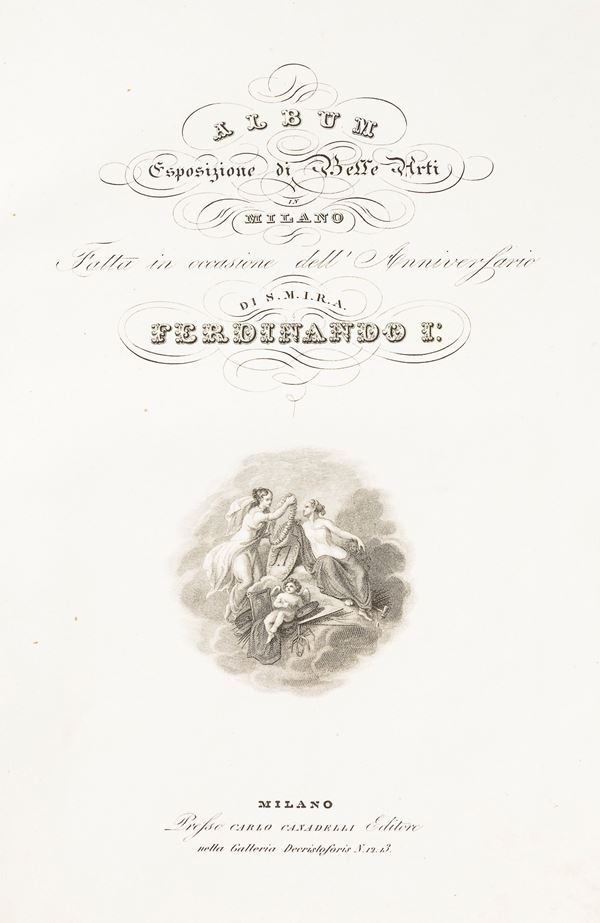 ALBUM
Esposizione di Belle Arti
IN
MILANO
Fatta in occasione dell' Anniversario
DI S.M.I.R.A.
FERDINANDO I.º
MILANO
Presso CARLO CANADELLI Editore
nella Galleria Decristoforis N. 12. 13.